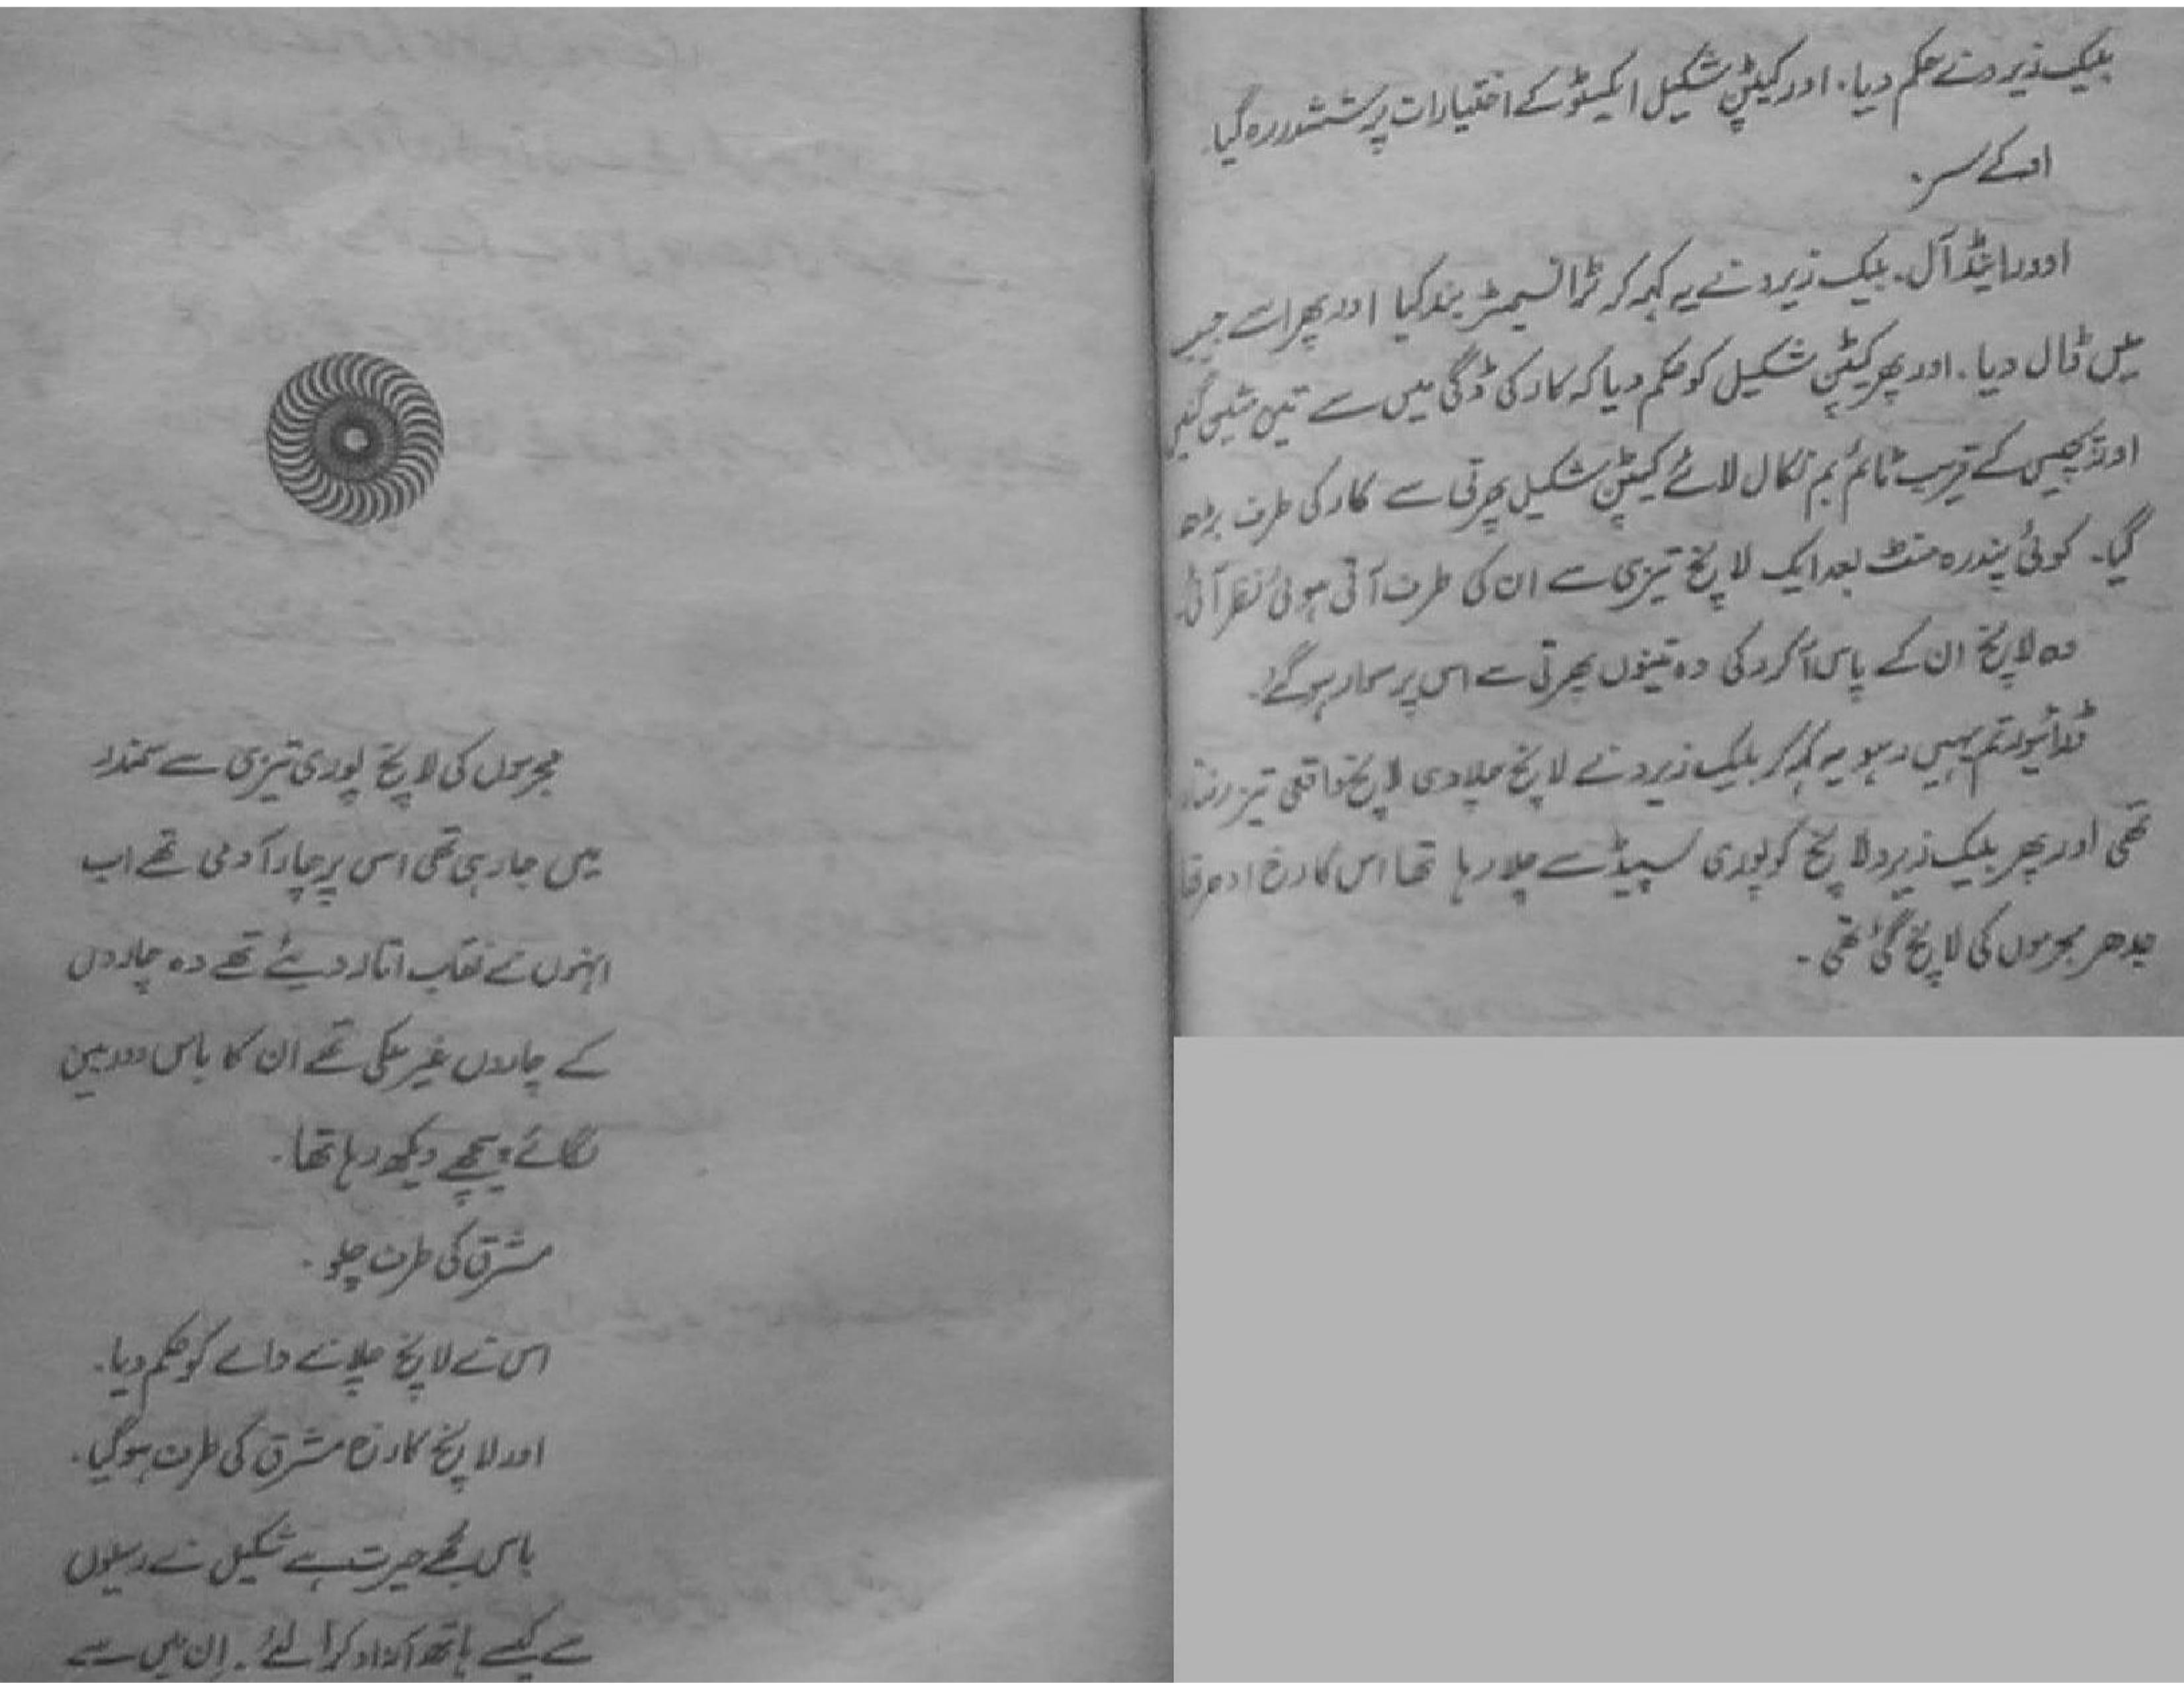 بلیک زیرو نے حکم دیا۔ اور کیپٹن شکیل ایکسٹو کے اختیارات پر ششدر رہ گیا۔
اوکے سر۔
اوور اینڈ آل۔ بلیک زیرو نے یہ کہہ کر ٹرانسمیٹر بند کیا اور پھر اسے جیب
میں ڈال دیا۔ اور پھر کیپٹن شکیل کو حکم دیا کہ کار کی ڈگی میں سے تین مشین گنیں
اور پچیس کے قریب ٹائم بم نکال لائے کیپٹن شکیل پھرتی سے کار کی طرف بڑھ
گیا۔ کوئی پندرہ منٹ بعد ایک لانچ تیزی سے ان کی طرف آتی ہوئی نظر آئی۔
وہ لانچ ان کے پاس آ کر رکی وہ تینوں پھرتی سے اس پر سوار ہو گئے۔
ڈرائیور تم یہیں رہو یہ کہہ کر بلیک زیرو نے لانچ چلا دی لانچ واقعی تیز رفتار
تھی اور پھر بلیک زیرو لانچ کو پوری سپیڈ سے چلا رہا تھا اس کا رخ ادھر تھا
جدھر مجرموں کی لانچ گئی تھی۔
مجرموں کی لانچ پوری تیزی سے سمندر
میں جا رہی تھی اس پر چار آدمی تھے اب
انہوں نے نقاب اتار دیئے تھے وہ چاروں
کے چاروں غیر ملکی تھے ان کا باس دوربین
لگائے پیچھے دیکھ رہا تھا۔
مشرق کی طرف چلو۔
اس نے لانچ چلانے والے کو حکم دیا۔
اور لانچ کا رخ مشرق کی طرف ہو گیا۔
باس مجھے حیرت ہے شکیل نے رسیوں
سے کیسے ہاتھ آزاد کرا لئے۔ ان میں سے